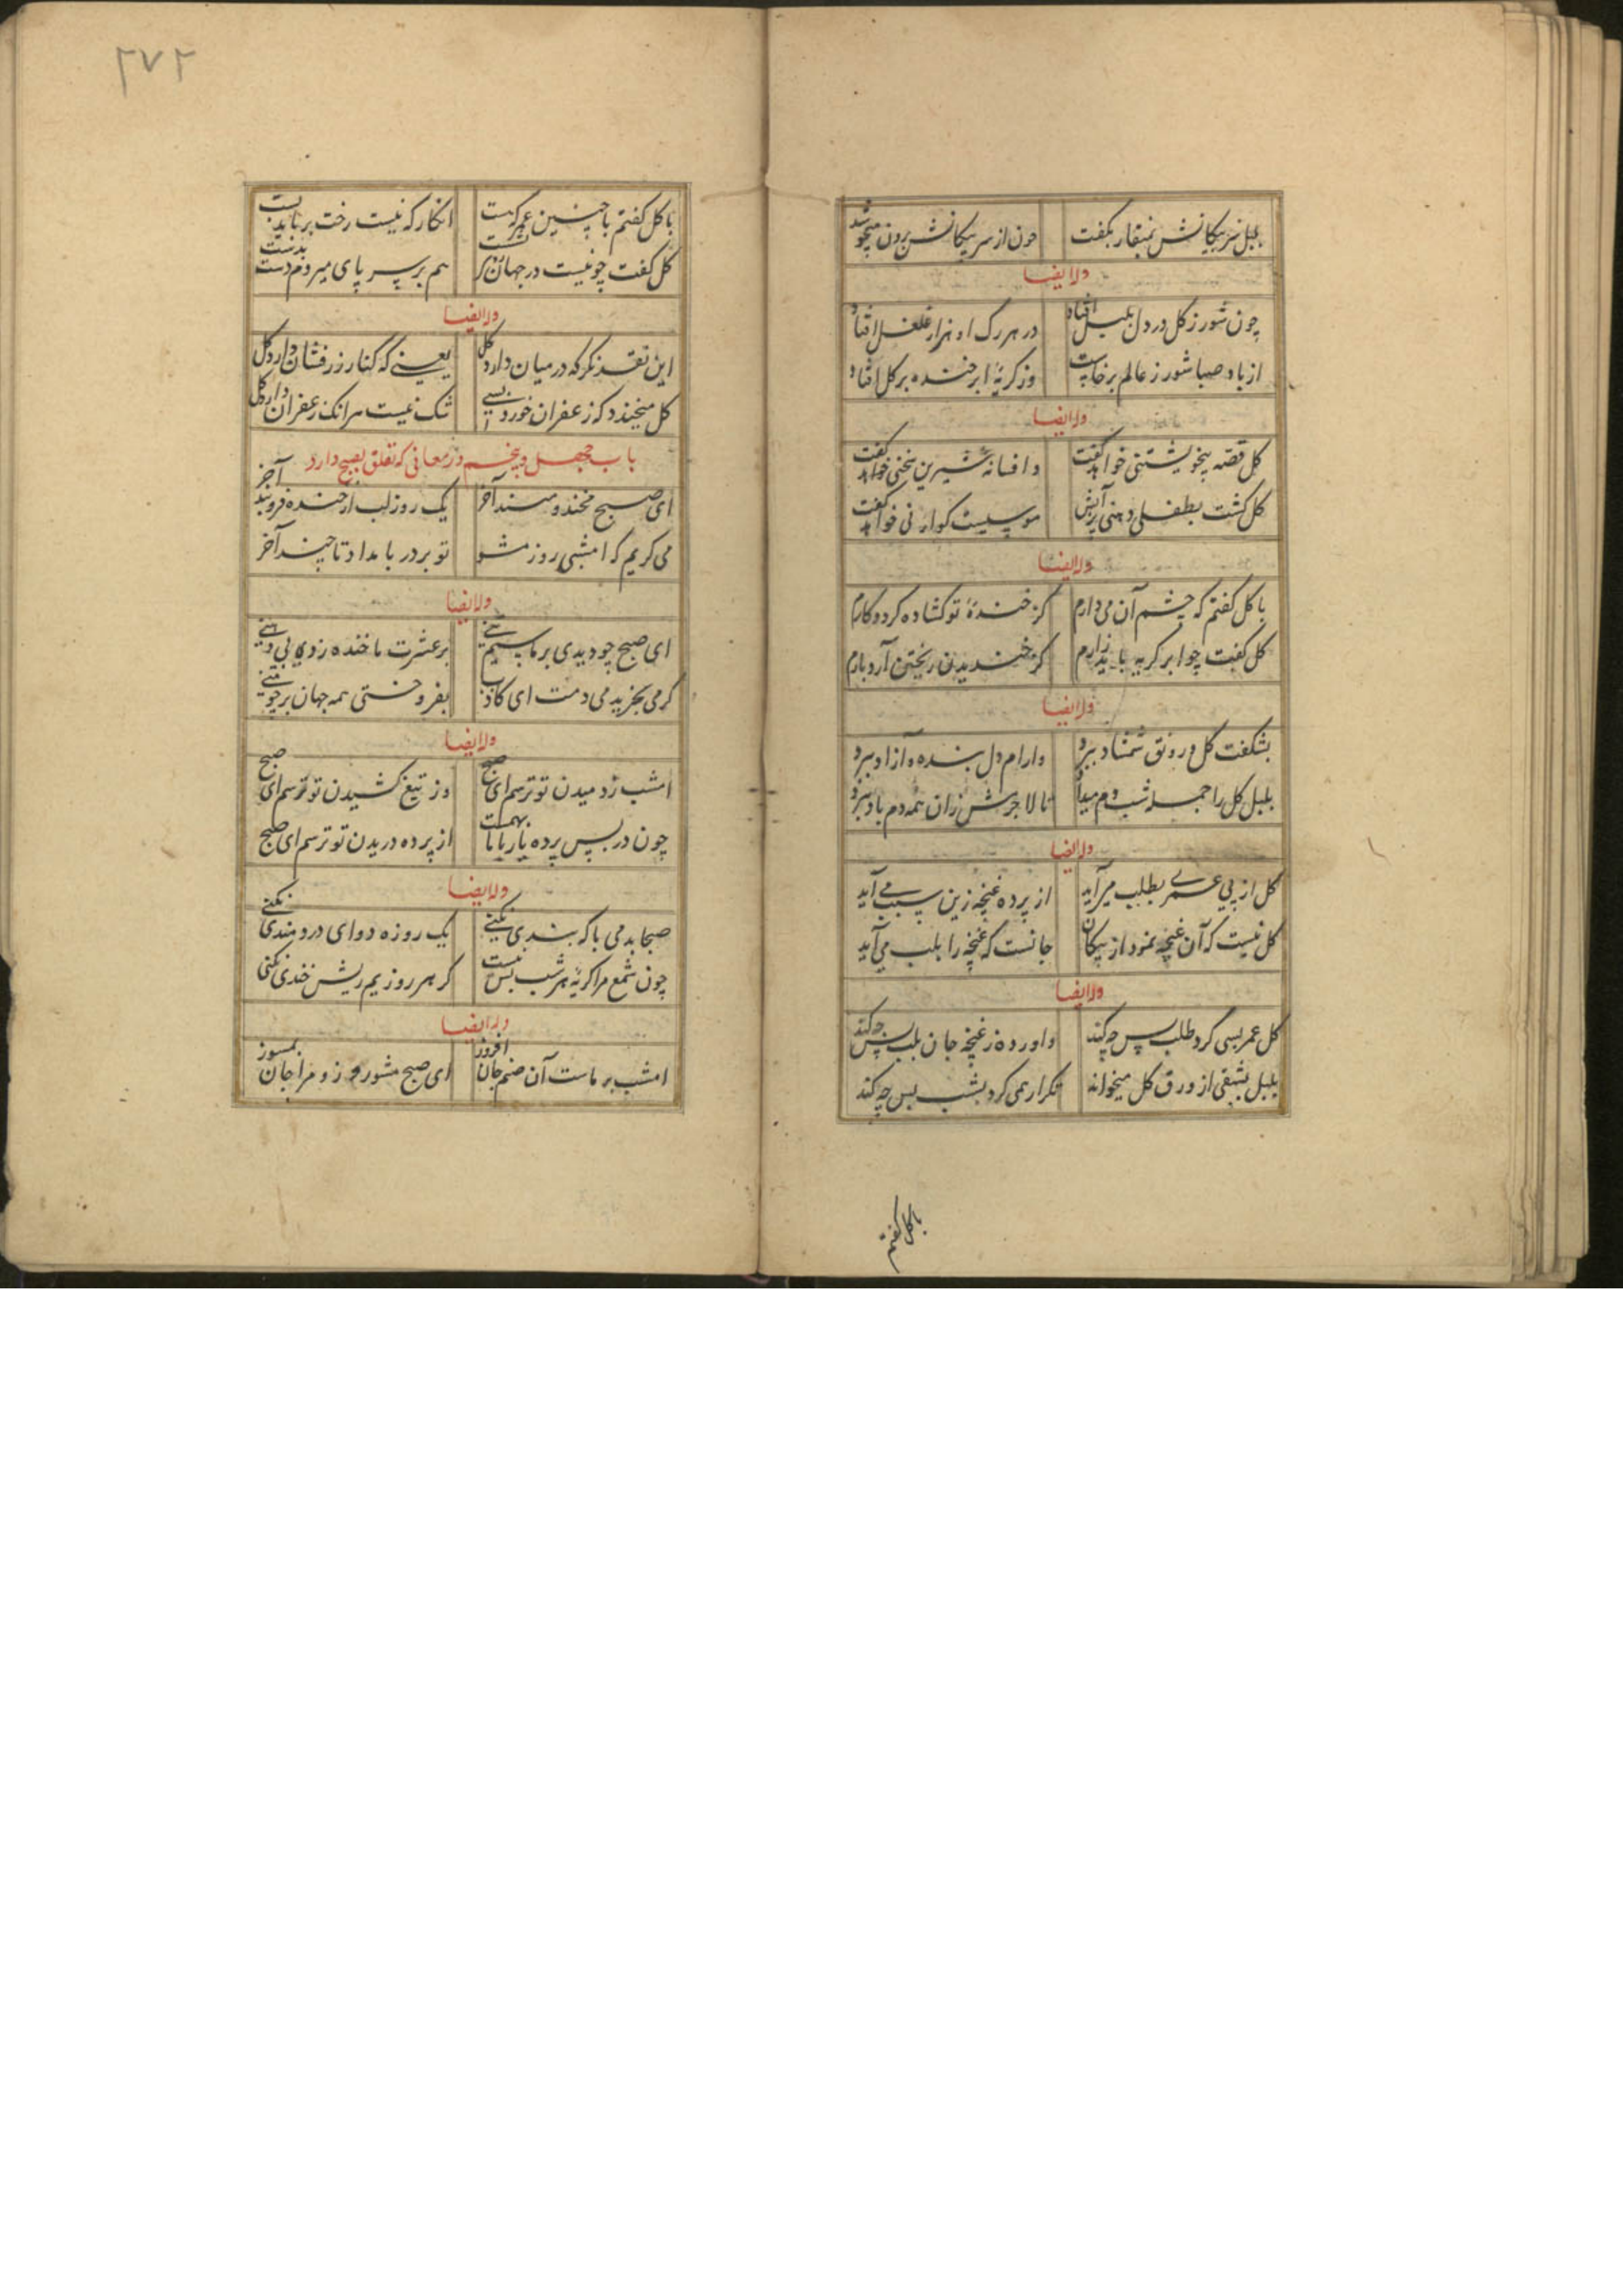 بلبل سر پیکانش بمنقار بگفت چون از سر پیکانش برون میجوشد
وله ایضا
چون شور ز گل در دل بلبل افتاد در هر رگ او هزار غلغل افتاد
از باد صبا شور ز عالم برخاست وز گریهٔ ابر خنده بر گل افتاد
وله ایضا
گل قصه بیخویشتنی خواهد گفت و افسانه شیرین سخنی خواهد گفت
گل گشت بطفلی دهنی پر آتش خواهد گفت
وله ایضا
با گل گفتم که چشم آن می دارم کز خندهٔ تو گشاده گردد کارم
گل گفت چو ابر گریه باید زارم کز خندیدن ریختن آرد بارم
وله ایضا
بشکفت گل و رونق شمشاد ببرد و ارام دل بنده و آزاد ببرد
بلبل گل را جمله شب دم میداد تا لاجرمش زان همه دم باد ببرد
وله ایضا
گل از پی عمری بطلب می آید از پرده غنچه زین سبب می آید
گل نیست که آن غنچه نمود از پیکان جانست که غنچه را بلب می آید
وله ایضا
گل عمر بسی کرد طلب پس چه کند واورده ز غنچه جان بلب پس چه کند
بلبل سبقی از ورق گل میخواند تکرار همی کرد بشب پس چه کند
با گل گفتم
۲۷۲
با گل گفتم با چنین عمر که هست انگار که نیست رخت بر باید بست
گل گفت چو نیست در جهان جای نشست هم بر سر پای میروم دست بدست
وله ایضا
این نقد نگر که در میان دارد گل یعنی که کنار زر فشان دارد گل
گل میخندد که زعفران خورد بسی شک نیست در آنک زعفران دارد گل
باب چهل و پنجم در معانی که تعلق بصبح دارد
ای صبح مخند و مپسند آخر یک روز لب از خنده فرو بند آخر
می گریم که امشبی روز مشو تو بر در بامداد تا چند آخر
وله ایضا
ای صبح چو دیدی بر ما سیم تنی بر عشرت ما خنده زدی بی دهنی
گر می بخرید می دمت ای کاذب بفروختی همه جهان بر چو منی
وله ایضا
امشب ز دمیدن تو ترسم ای صبح وز تیغ کشیدن تو ترسم ای صبح
چون در پس پرده یار با ما بهمست از پرده دریدن تو ترسم ای صبح
وله ایضا
صبحا بدمی با که بندی نکنی یک روزه دوای دردمندی نکنی
چون شمع مرا گریهٔ هر شب بس نیست گر هر روزیم ریش خندی نکنی
وله ایضا
امشب بر ماست آن صنم جان افروز ای صبح مشو روز و مرا جان بمسوز